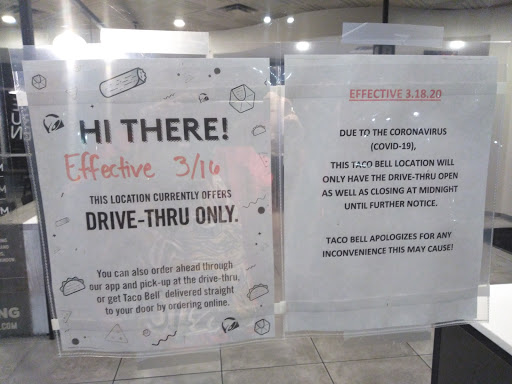 HI THERE!
Effective 3/16
THIS LOCATION CURRENTLY OFFERS
DRIVE-THRU ONLY.
You can also order ahead through
our app and pick-up at the drive-thru,
or get Taco Bell® delivered straight
to your door by ordering online.
EFFECTIVE 3.18.20
DUE TO THE CORONAVIRUS
(COVID-19),
THIS TACO BELL LOCATION WILL
ONLY HAVE THE DRIVE-THRU OPEN
AS WELL AS CLOSING AT MIDNIGHT
UNTIL FURTHER NOTICE.
TACO BELL APOLOGIZES FOR ANY
INCONVENIENCE THIS MAY CAUSE!